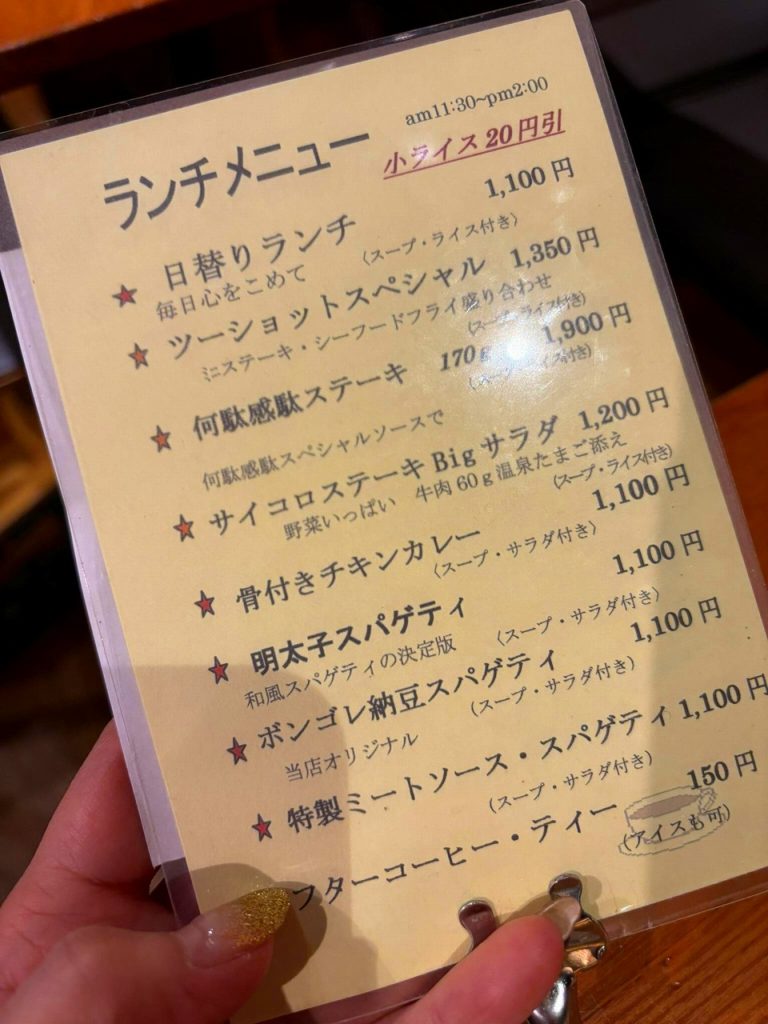 am11:30~pm2:00
ランチメニュー
小ライス20円引
★ 日替りランチ 1,100円
毎日心をこめて 〈スープ・ライス付き〉
★ ツーショットスペシャル 1,350円
ミニステーキ・シーフードフライ盛り合わせ
〈スープ・ライス付き〉
★ 何駄感駄ステーキ 170g 1,900円
〈スープ・ライス付き〉
何駄感駄スペシャルソースで
★ サイコロステーキBigサラダ 1,200円
野菜いっぱい 牛肉60g温泉たまご添え
〈スープ・ライス付き〉
★ 骨付きチキンカレー 1,100円
〈スープ・サラダ付き〉
★ 明太子スパゲティ 1,100円
和風スパゲティの決定版 〈スープ・サラダ付き〉
★ ボンゴレ納豆スパゲティ 1,100円
当店オリジナル 〈スープ・サラダ付き〉
★ 特製ミートソース・スパゲティ 1,100円
〈スープ・サラダ付き〉
フターコーヒー・ティー 150円
(アイスも可)